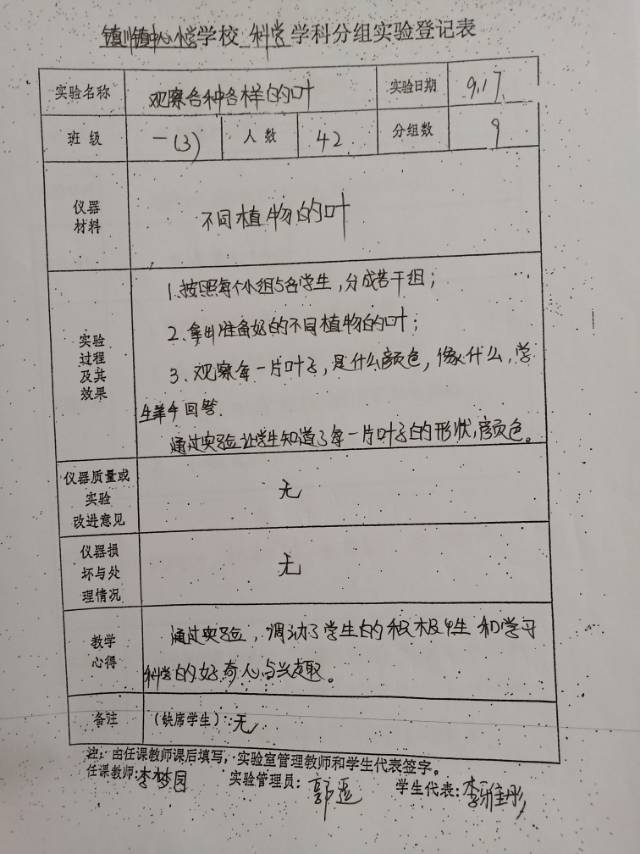 镇川镇中心小学学校 科学学科分组实验登记表
实验名称 观察各种各样的叶 实验日期 9.17
班级 一(3) 人数 42 分组数 9
仪器材料 不同植物的叶
实验过程及其效果
1.按照每个小组5名学生,分成若干组;
2.拿出准备好的不同植物的叶;
3.观察每一片叶子,是什么颜色,像什么,学
生举手回答.
通过实验让学生知道了每一片叶子的形状,颜色。
仪器质量或实验改进意见 无
仪器损坏与处理情况 无
教学心得
通过实验,调动了学生的积极性和学习
科学的好奇心与兴趣。
备注 (缺席学生):无
注:由任课教师课后填写,实验室管理教师和学生代表签字。
任课教师:李梦园 实验管理员: 学生代表:李雅彤